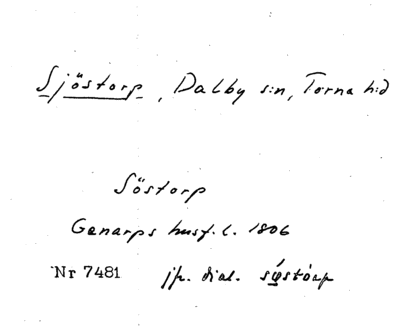 Sjöstorp, Dalby s:n, Torna hd
Söstorp
Genarps husf. l. 1806
Nr 7481 jfr. dial.